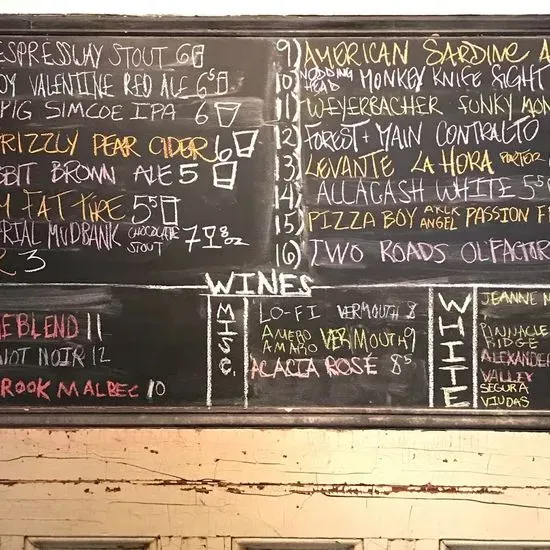 ESPRESSWAY STOUT 6
OY VALENTINE RED ALE 6⁵
PIG SIMCOE IPA 6
RIZZLY PEAR CIDER 6
BBIT BROWN ALE 5
FAT TIRE 5⁵
RIAL MUDBANK CHOCOLATE STOUT 7 8oz
3
9) AMERICAN SARDINE A
10) NODDING HEAD MONKEY KNIFE FIGHT
11) WEYERBACHER FUNKY MON
12) FOREST + MAIN CONTRALTO
13) LEVANTE LA HORA PORTER
14) ALLAGASH WHITE 5⁵
15) PIZZA BOY ANGEL PASSION F
16) TWO ROADS OLFACTOR
WINES
E BLEND 11
NOT NOIR 12
ROOK MALBEC 10
MISC.
LO-FI VERMOUTH 8
AMERO AMARO VERMOUTH 9
ACACIA ROSÉ 8⁵
WHITE
JEANNE M
PINNACLE
RIDGE
ALEXANDE
VALLEY
SEGURA
VIUDAS